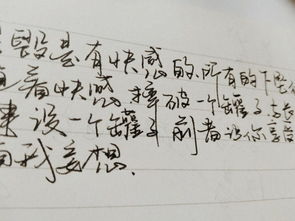 毁是有快感的，所有的下坠
着快感，摔破一个罐子
建设一个罐子，前者让你享受
自我妄想。